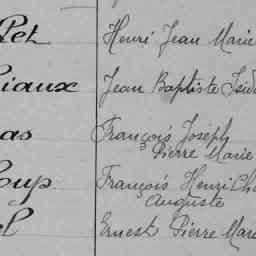 Pet Henri Jean Marie
iaux Jean Baptiste Isid
as François Joseph
Pierre Marie
oup François Henri Ch
Auguste
el Ernest Pierre Mar